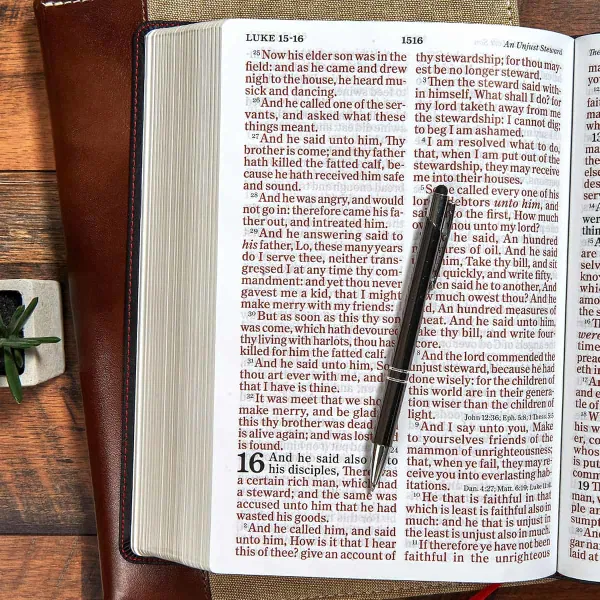 LUKE 15-16
1516
An Unjust Steward
25 Now his elder son was in the
field: and as he came and drew
nigh to the house, he heard mu-
sick and dancing.
26 And he called one of the ser-
vants, and asked what these
things meant.
27 And he said unto him, Thy
brother is come; and thy father
hath killed the fatted calf, be-
cause he hath received him safe
and sound.
28 And he was angry, and would
not go in: therefore came his fa-
ther out, and intreated him.
29 And he answering said to
his father, Lo, these many years
do I serve thee, neither trans-
gressed I at any time thy com-
mandment: and yet thou never
gavest me a kid, that I might
make merry with my friends:
30 But as soon as this thy son
was come, which hath devoured
thy living with harlots, thou has
killed for him the fatted calf.
31 And he said unto him, So
thou art ever with me, and
that I have is thine.
32 It was meet that we sho
make merry, and be glad
this thy brother was dead
is alive again; and was lost
is found.
24
16 And he said also to
his disciples, There was
a certain rich man, which had
a steward; and the same was
accused unto him that he had
wasted his goods.
2 And he called him, and said
unto him, How is it that I hear
this of thee? give an account of
thy stewardship; for thou may-
est be no longer steward.
3 Then the steward said with-
in himself, What shall I do? for
my lord taketh away from me
the stewardship: I cannot dig;
to beg I am ashamed.
4 I am resolved what to do,
that, when I am put out of the
stewardship, they may receive
me into their houses.
5 So he called every one of his
lor debtors unto him, and
said to the first, How much
ow thou unto my lord?
he said, An hundred
ures of oil. And he said
im, Take thy bill, and sit
quickly, and write fifty.
en said he to another, And
w much owest thou? And he
, An hundred measures of
heat. And he said unto him,
ake thy bill, and write four-
core.
8 And the lord commended the
unjust steward, because he had
done wisely: for the children of
this world are in their genera-
tion wiser than the children of
light.
John 12:36; Eph. 5:8; 1 Thess. 5:5
9 And I say unto you, Make
to yourselves friends of the
mammon of unrighteousness;
that, when ye fail, they may re-
ceive you into everlasting hab-
itations.
Dan. 4:27; Matt. 6:19; Luke 11:41
10 He that is faithful in that
which is least is faithful also in
much: and he that is unjust in
the least is unjust also in much.
11 If therefore ye have not been
faithful in the unrighteous